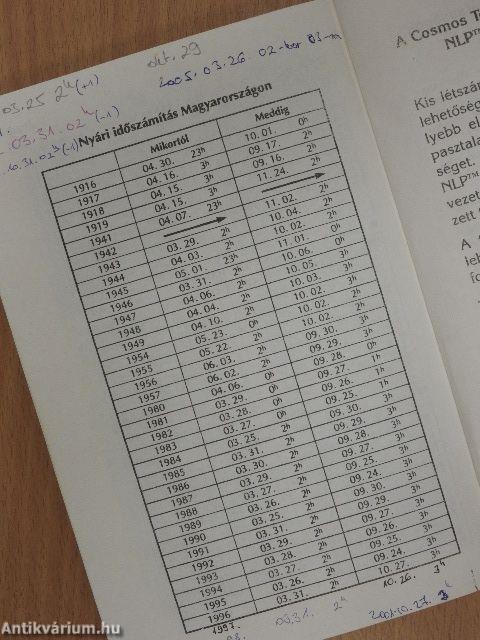 okt. 29
03.25 2h (+1)
2005. 03.26. 02-kor 03-ra
03.31.02h (-1)
Nyári időszámítás Magyarországon
Mikortól Meddig
1916 04. 30. 23h 10. 01. 0h
1917 04. 16. 3h 09. 17. 2h
1918 04. 15. 3h 09. 16. 2h
1919 04. 15. 3h 11. 24. 2h
1941 04. 07. 23h
1942 11. 02. 2h
1943 03. 29. 2h 10. 04. 2h
1944 04. 03. 2h 10. 02. 2h
1945 05. 01. 23h 11. 01. 0h
1946 03. 31. 2h 10. 06. 0h
1947 04. 06. 2h 10. 05. 3h
1948 04. 04. 2h 10. 03. 3h
1949 04. 10. 2h 10. 02. 3h
1954 05. 23. 0h 10. 02. 2h
1955 05. 22. 2h 10. 02. 3h
1956 06. 03. 2h 09. 30. 3h
1957 06. 02. 2h 09. 29. 3h
1980 04. 06. 0h 09. 28. 0h
1981 03. 29. 0h 09. 27. 1h
1982 03. 28. 0h 09. 26. 1h
1983 03. 27. 0h 09. 25. 1h
1984 03. 25. 2h 09. 30. 3h
1985 03. 31. 2h 09. 29. 3h
1986 03. 30. 2h 09. 28. 3h
1987 03. 29. 2h 09. 27. 3h
1988 03. 27. 2h 09. 25. 3h
1989 03. 26. 2h 09. 24. 3h
1990 03. 25. 2h 09. 30. 3h
1991 03. 31. 2h 09. 29. 3h
1992 03. 29. 2h 09. 27. 3h
1993 03. 28. 2h 09. 26. 3h
1994 03. 27. 2h 09. 25. 3h
1995 03. 26. 2h 09. 24. 3h
1996 03. 31. 2h 10. 27. 3h
1997. 10.26. 3h
03.31. 2h 2001.10.27. 3h
A Cosmos T
NLP™
Kis létszám
lehetőség
lyebb el
pasztala
séget.
NLP™
vezet
zett
A
leh
fo
Antikvárium.hu